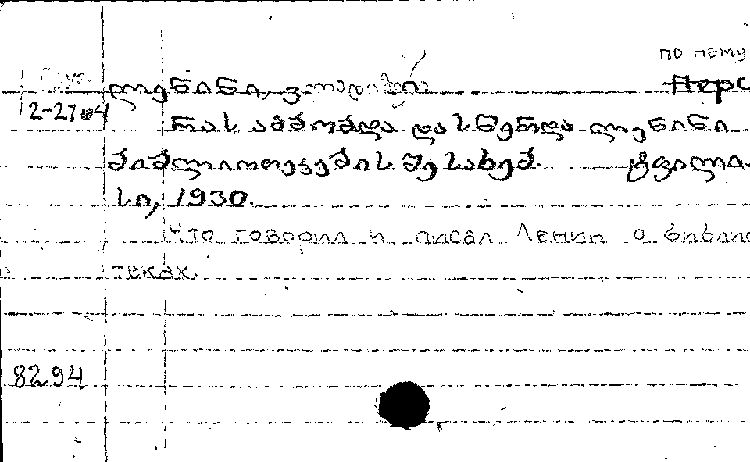 по нему
Груз.
2-2704
ლენინი, ვლადიმერ
რას ამბობდა და სწერდა ლენინი
ბიბლიოთეკების შესახებ. ტფილი-
სი, 1930.
Что говорил и писал Ленин о библио
теках.
8294